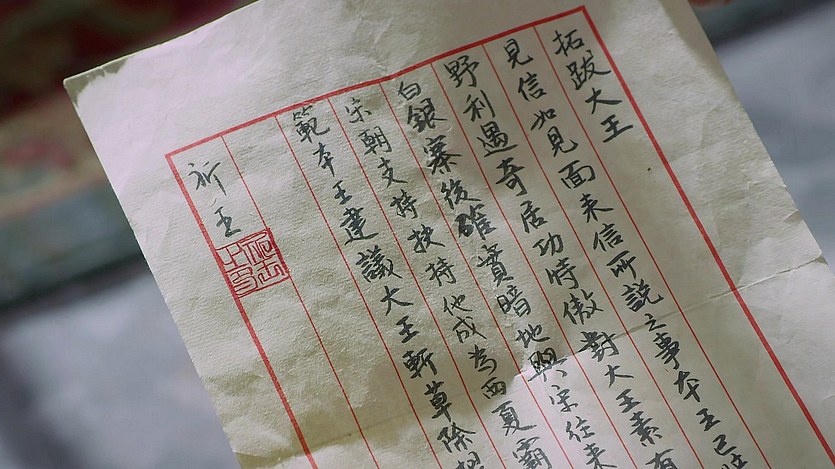 拓跋大王
見信如見面来信所說之事本王已
野利遇奇居功恃傲對大王素有
白銀寨後確實暗地與宋往来
宋朝支持扶持他成為西夏霸
範本王建議大王斬草除根
祈王